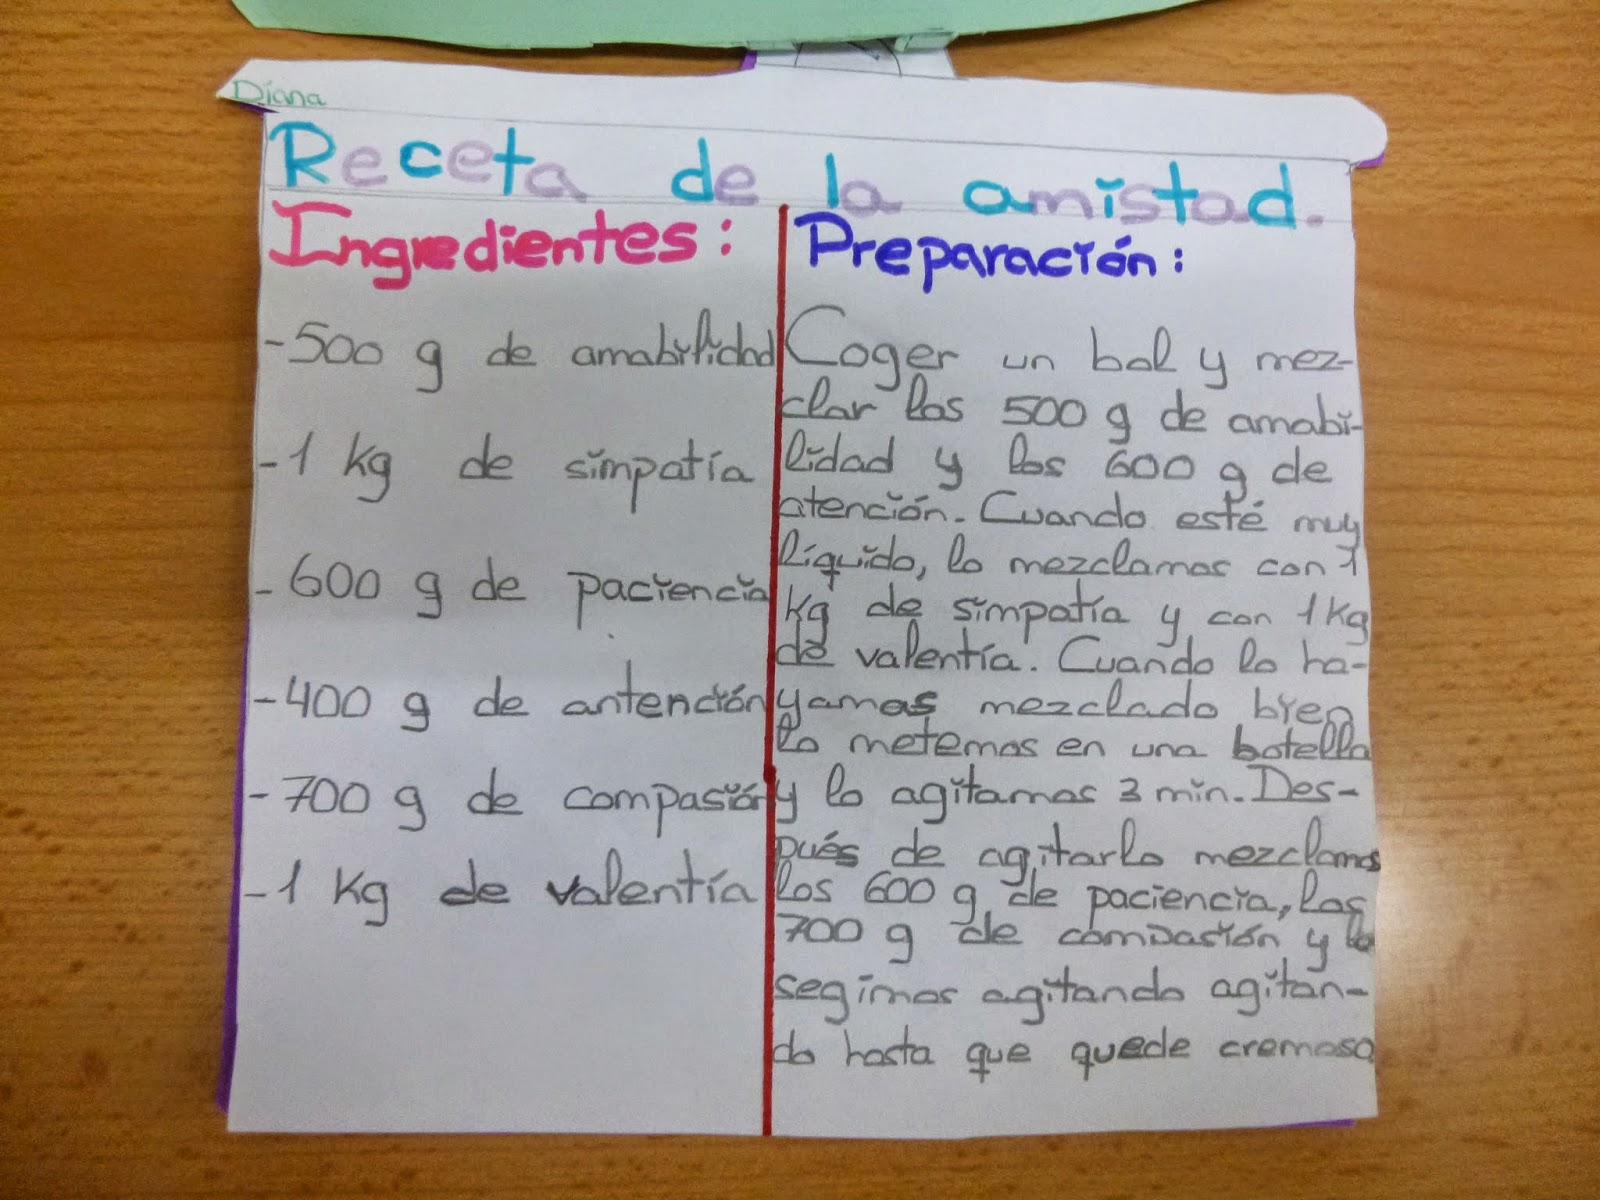 Diana
Receta de la amistad.
Ingredientes:
-500 g de amabilidad
-1 kg de simpatía
-600 g de paciencia
-400 g de antención
-700 g de compasión
-1 kg de valentía
Preparación:
Coger un bol y mez-
clar los 500 g de amabi-
lidad y los 600 g de
atención. Cuando esté muy
líquido, lo mezclamos con 1
kg de simpatía y con 1 kg
de valentía. Cuando lo ha-
yamos mezclado bien
lo metemos en una botella
y lo agitamos 3 min. Des-
pués de agitarlo mezclamos
los 600 g de paciencia, los
700 g de compasión y lo
segimos agitando agitan-
do hasta que quede cremoso